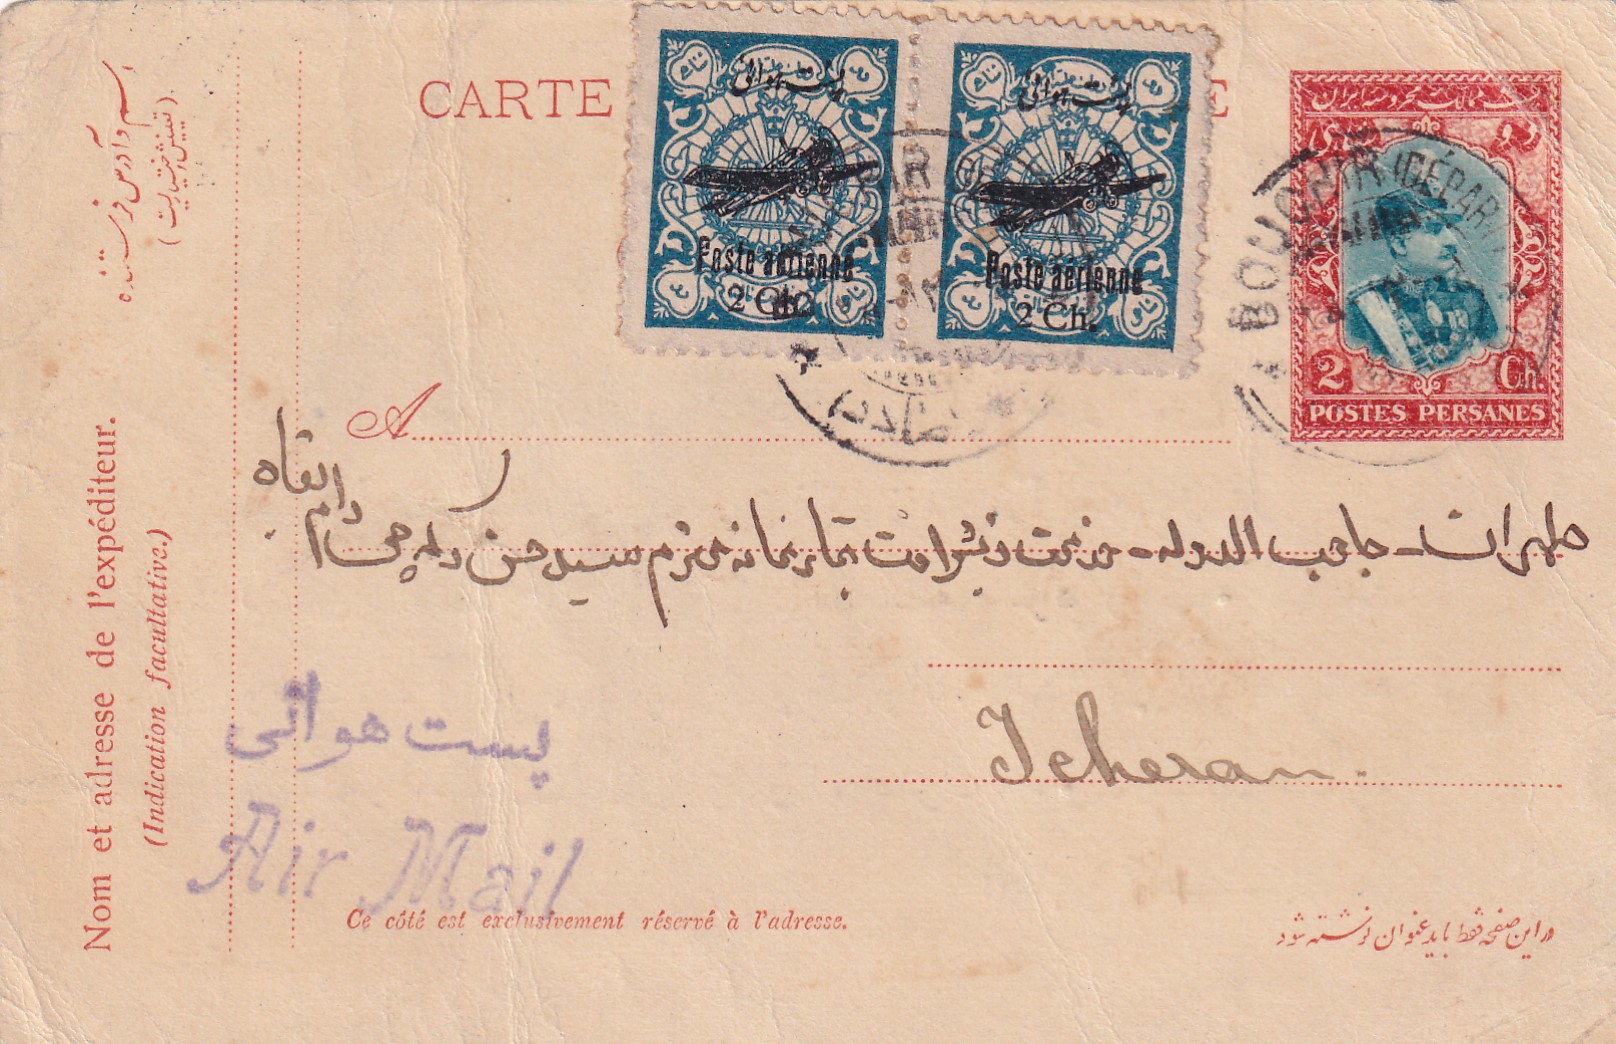 CARTE
پست هوائی
Poste aérienne
2 Ch.
پست هوائی
Poste aérienne
2 Ch.
پست ممالک محروسه ایران
2 Ch.
POSTES PERSANES
BOUCHIR (DÉPART)
(صادره)
اسم و آدرس فرستنده
Nom et adresse de l'expéditeur.
(Indication facultative.)
A
طهران - حاجب الدوله - خدمت
محترم سید حسن
دام بقاه
Teheran.
پست هوائی
Air Mail
Ce côté est exclusivement réservé à l'adresse.
در این صفحه فقط باید عنوان نوشته شود